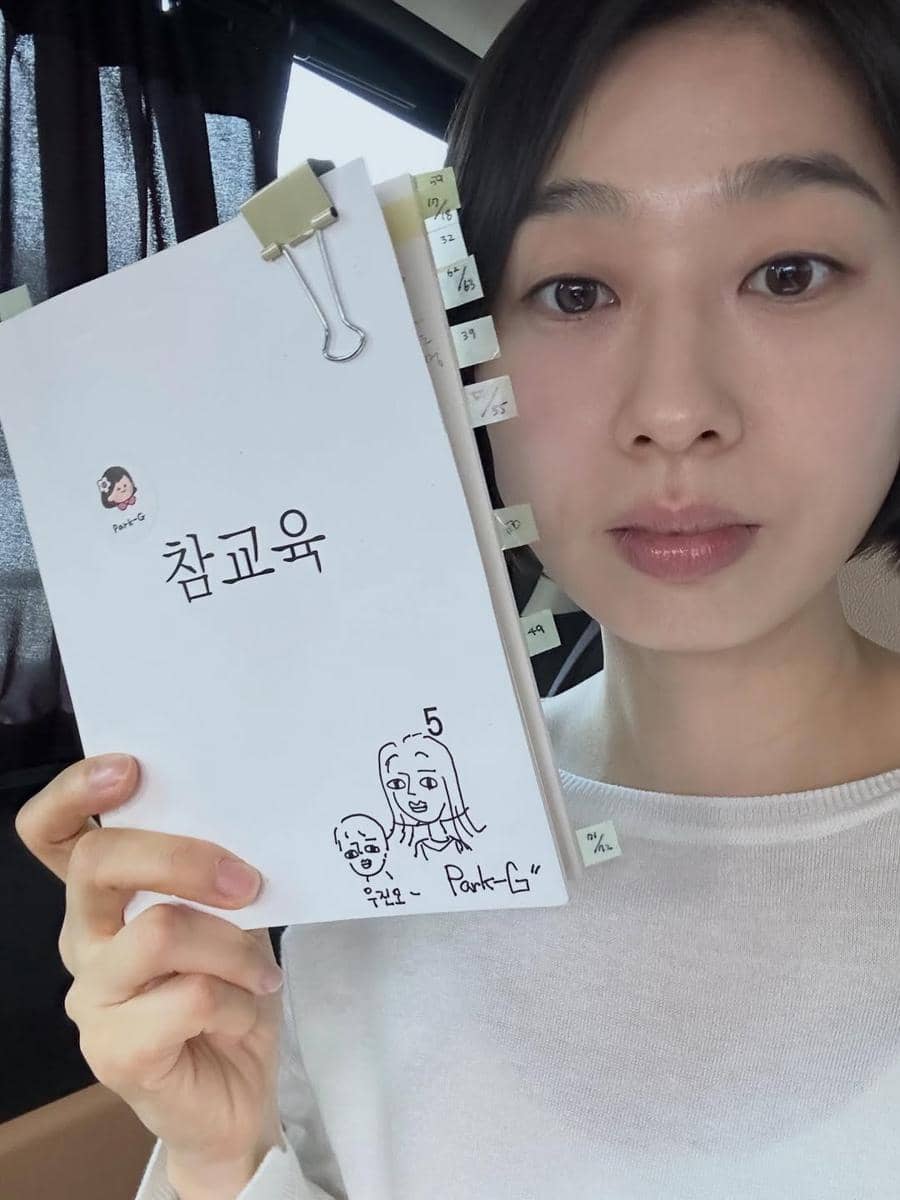 Park-G
참교육
5
우진오~
Park-G"
39
17/18
32
62/63
39
/55
70
49